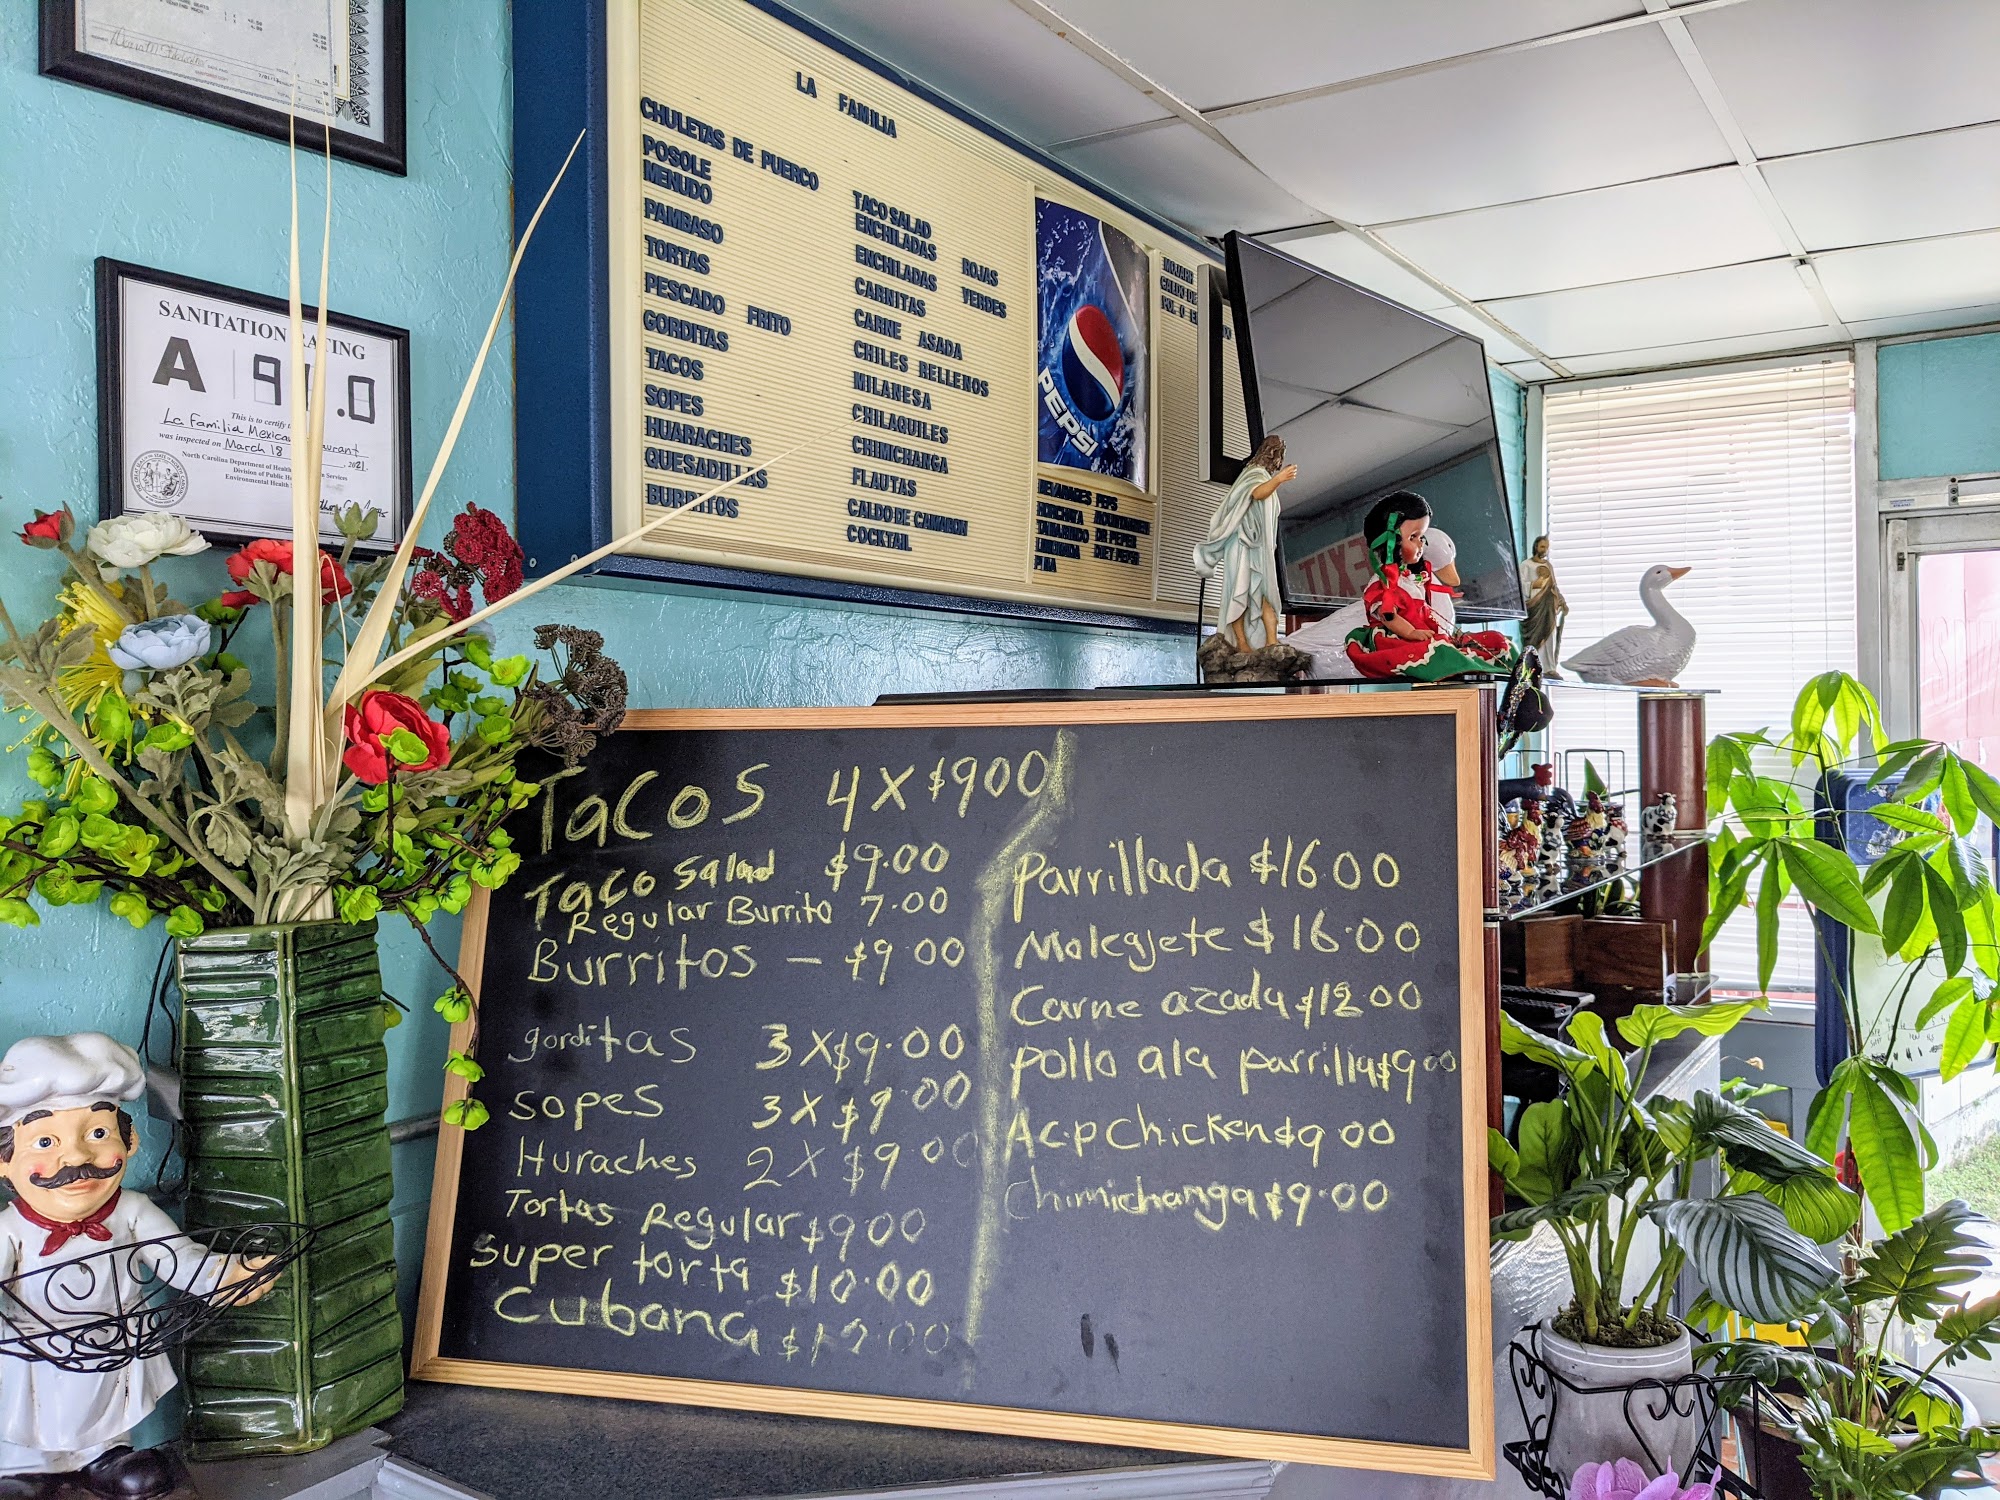 SANITATION RATING
A 9 .0
This is to certify
La Familia Mexican
was inspected on March 18, 2021.
North Carolina Department of Health Services
Division of Public Health
Environmental Health
LA FAMILIA
CHULETAS DE PUERCO
POSOLE
MENUDO
PAMBASO
TORTAS
PESCADO FRITO
GORDITAS
TACOS
SOPES
HUARACHES
QUESADILLAS
BURRITOS
TACO SALAD
ENCHILADAS ROJAS
ENCHILADAS VERDES
CARNITAS
CARNE ASADA
CHILES RELLENOS
MILANESA
CHILAQUILES
CHIMCHANGA
FLAUTAS
CALDO DE CAMARON
COCKTAIL
PEPSI
BEVARAGES PEPS
HORCHATA
TAMARINDO DR PEPER
DIET PEPSI
PINA
CALDO DE
EXIT
Tacos 4X$900
Taco Salad $9.00
Regular Burrito 7.00
Burritos — $9.00
gorditas 3X$9.00
Sopes 3X$9.00
Huraches 2X$9.00
Tortas Regular $9.00
Super torta $10.00
Cubana
Parrillada $16.00
Molcajete $16.00
Carne azada $12.00
pollo ala parrilla $9.00
ACP Chicken $9.00
Chimichanga $9.00